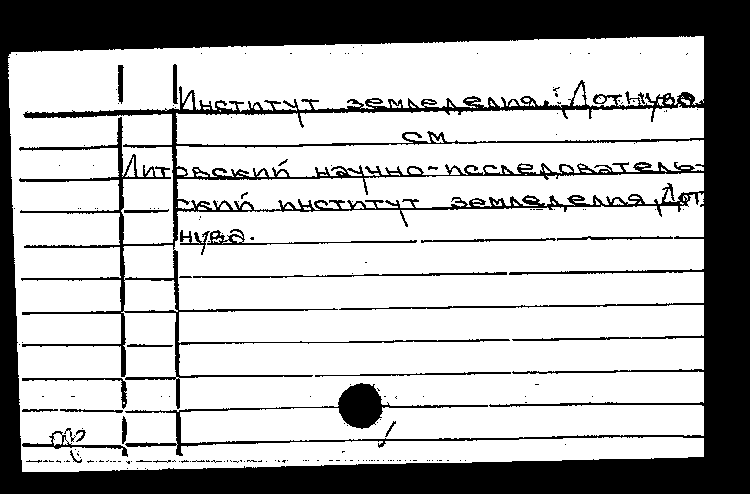 Институт земледелия. Дотнува.
см.
Литовский научно-исследователь-
ский институт земледелия, Дот-
нува.